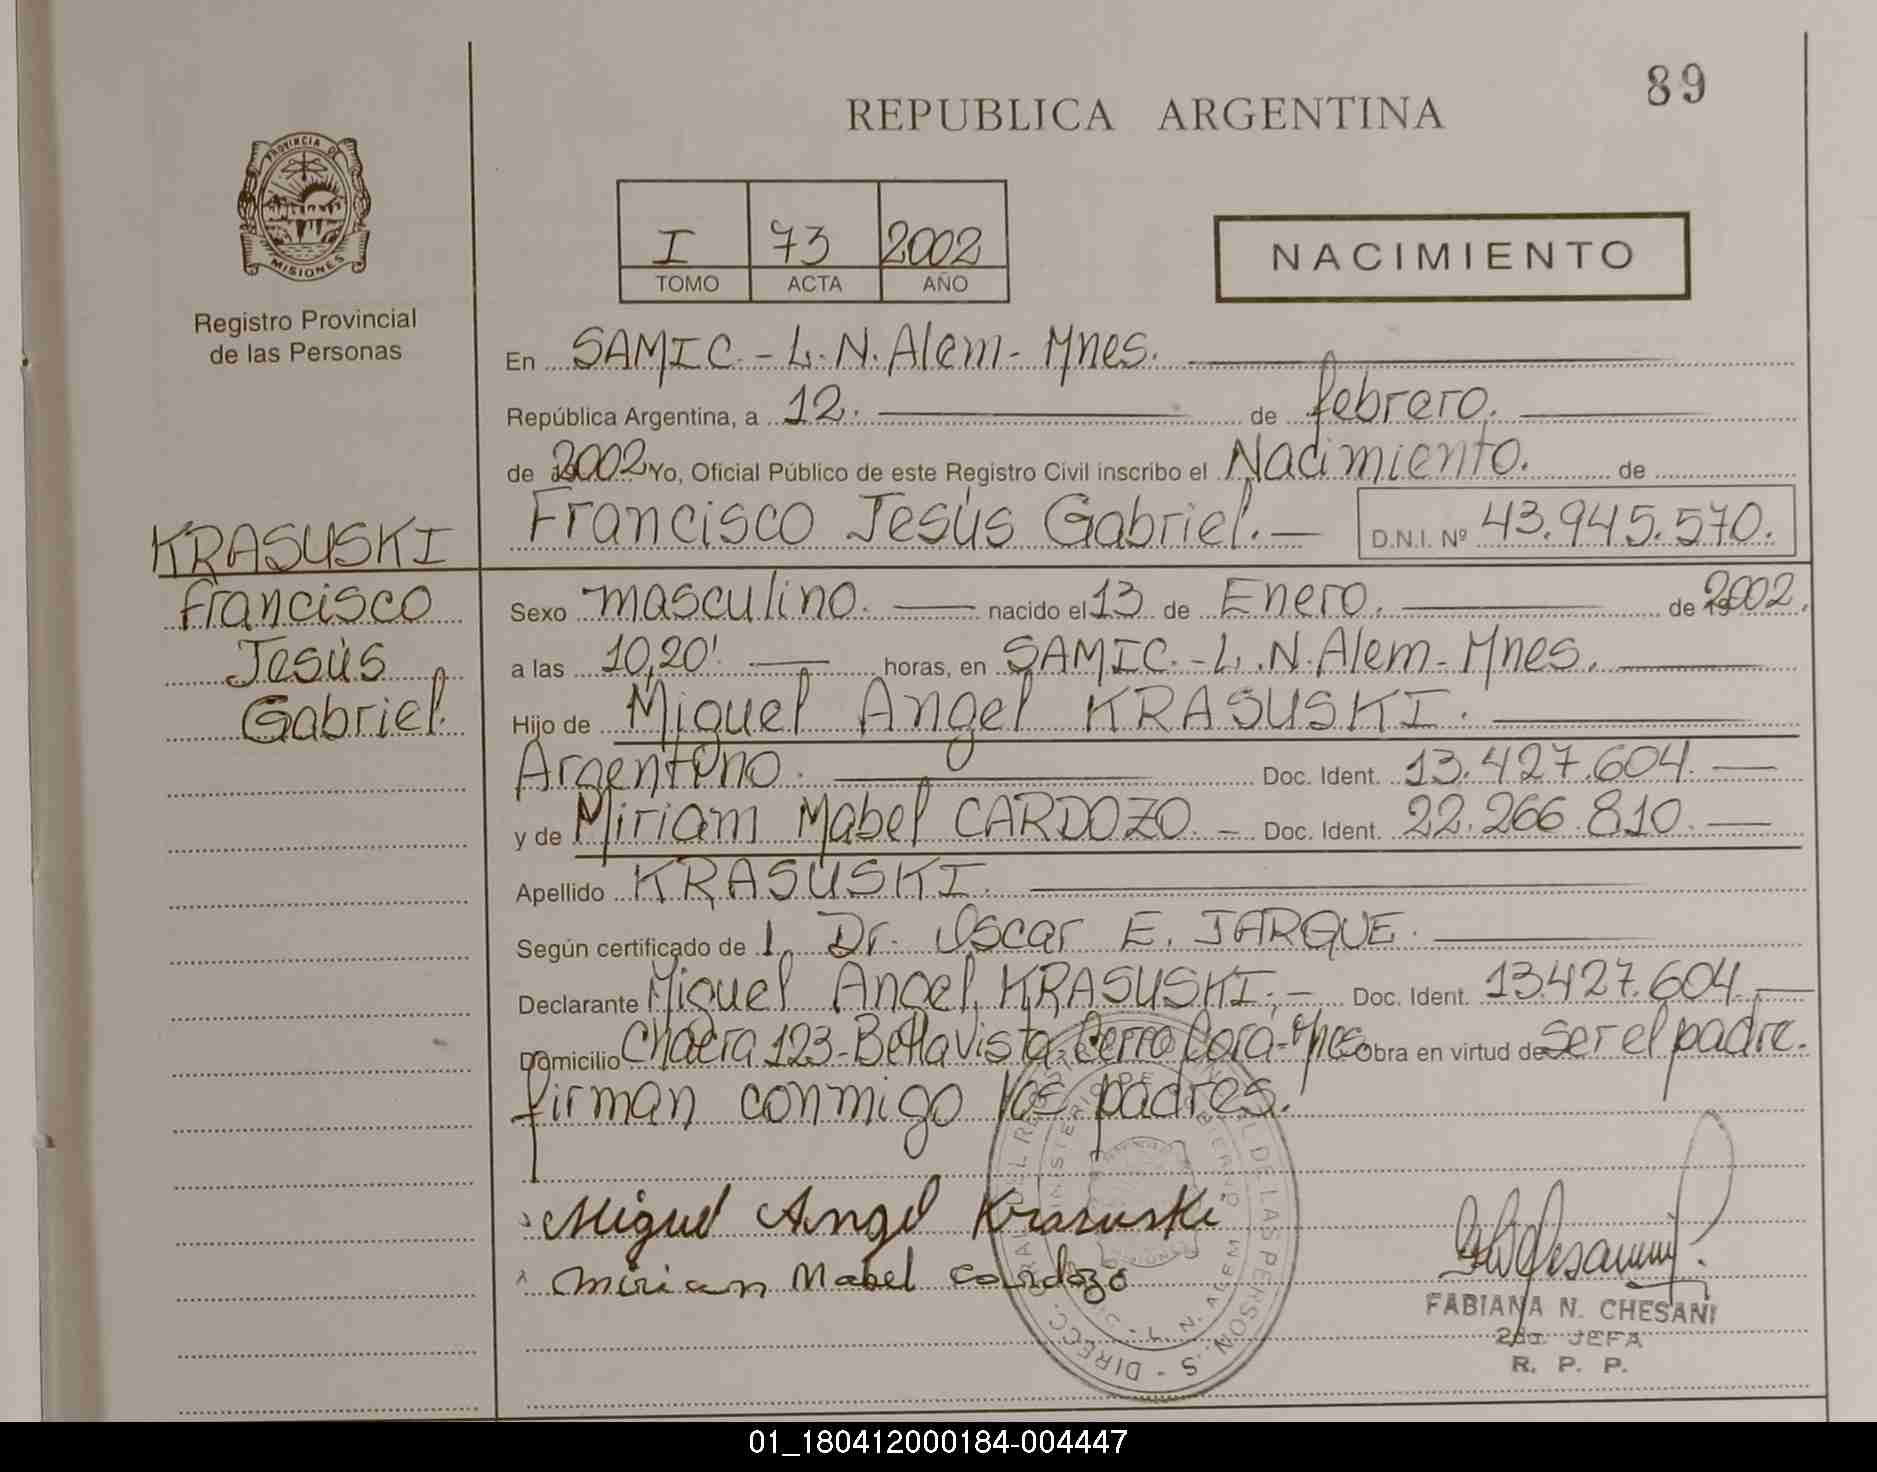 89
REPUBLICA ARGENTINA
PROVINCIA DE
MISIONES
Registro Provincial
de las Personas
I 73 2002
TOMO ACTA AÑO
NACIMIENTO
En SAMIC.- L.N.Alem- Mnes.
República Argentina, a 12. de febrero.
de 2002 Yo, Oficial Público de este Registro Civil inscribo el Nacimiento. de
Francisco Jesús Gabriel.— D.N.I. Nº 43.945.570.
KRASUSKI
Francisco
Jesús
Gabriel.
Sexo masculino. — nacido el 13 de Enero. de 2002.
a las 10,20'. — horas, en SAMIC.-L.N.Alem-Mnes.
Hijo de Miguel Angel KRASUSKI.
Argentino. Doc. Ident. 13.427.604.—
y de Miriam Mabel CARDOZO.- Doc. Ident. 22.266.810.—
Apellido KRASUSKI.
Según certificado de 1. Dr. Oscar E. JARQUE.
Declarante Miguel Angel KRASUSKI.- Doc. Ident. 13.427.604.—
Domicilio Chacra 123-Bella Vista-Cerro Cora-Mnes Obra en virtud de ser el padre.
firman conmigo los padres.
Miguel Angel Krasuski
Mirian Mabel Cardozo
FABIANA N. CHESANI
2da. JEFA
R. P. P.
01_180412000184-004447